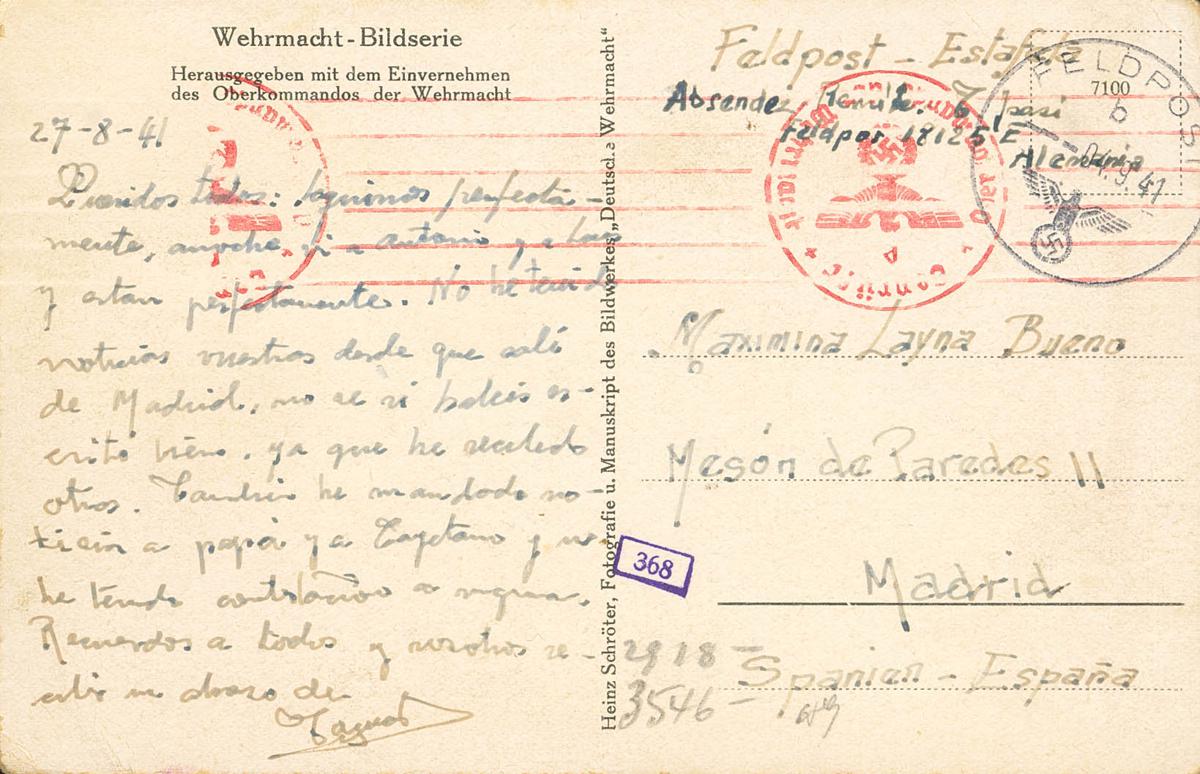 Wehrmacht-Bildserie
Herausgegeben mit dem Einvernehmen
des Oberkommandos der Wehrmacht
27-8-41
Queridos todos: Seguimos perfecta-
mente, anoche vi a Antonio y a
y estan perfectamente. No he tenido
noticias vuestras desde que salí
de Madrid, no se si habeis es-
crito bien, ya que he recibido
otros. Tambien he mandado no-
ticias a papá y a Cayetano y no
he tenido contestación a
Recuerdos a todos y vosotros re-
cibir un abrazo de
Heinz Schröter, Fotografie u. Manuskript des Bildwerkes „Deutsche Wehrmacht“
Feldpost - Estafeta
Absender
Feldpos. 18125 E
Alemania
FELDPOST
7100
b
04.9.41
Maximina Layna Bueno
Mesón de Paredes 11
Madrid
Spanien - España
368
2918 -
3546 -